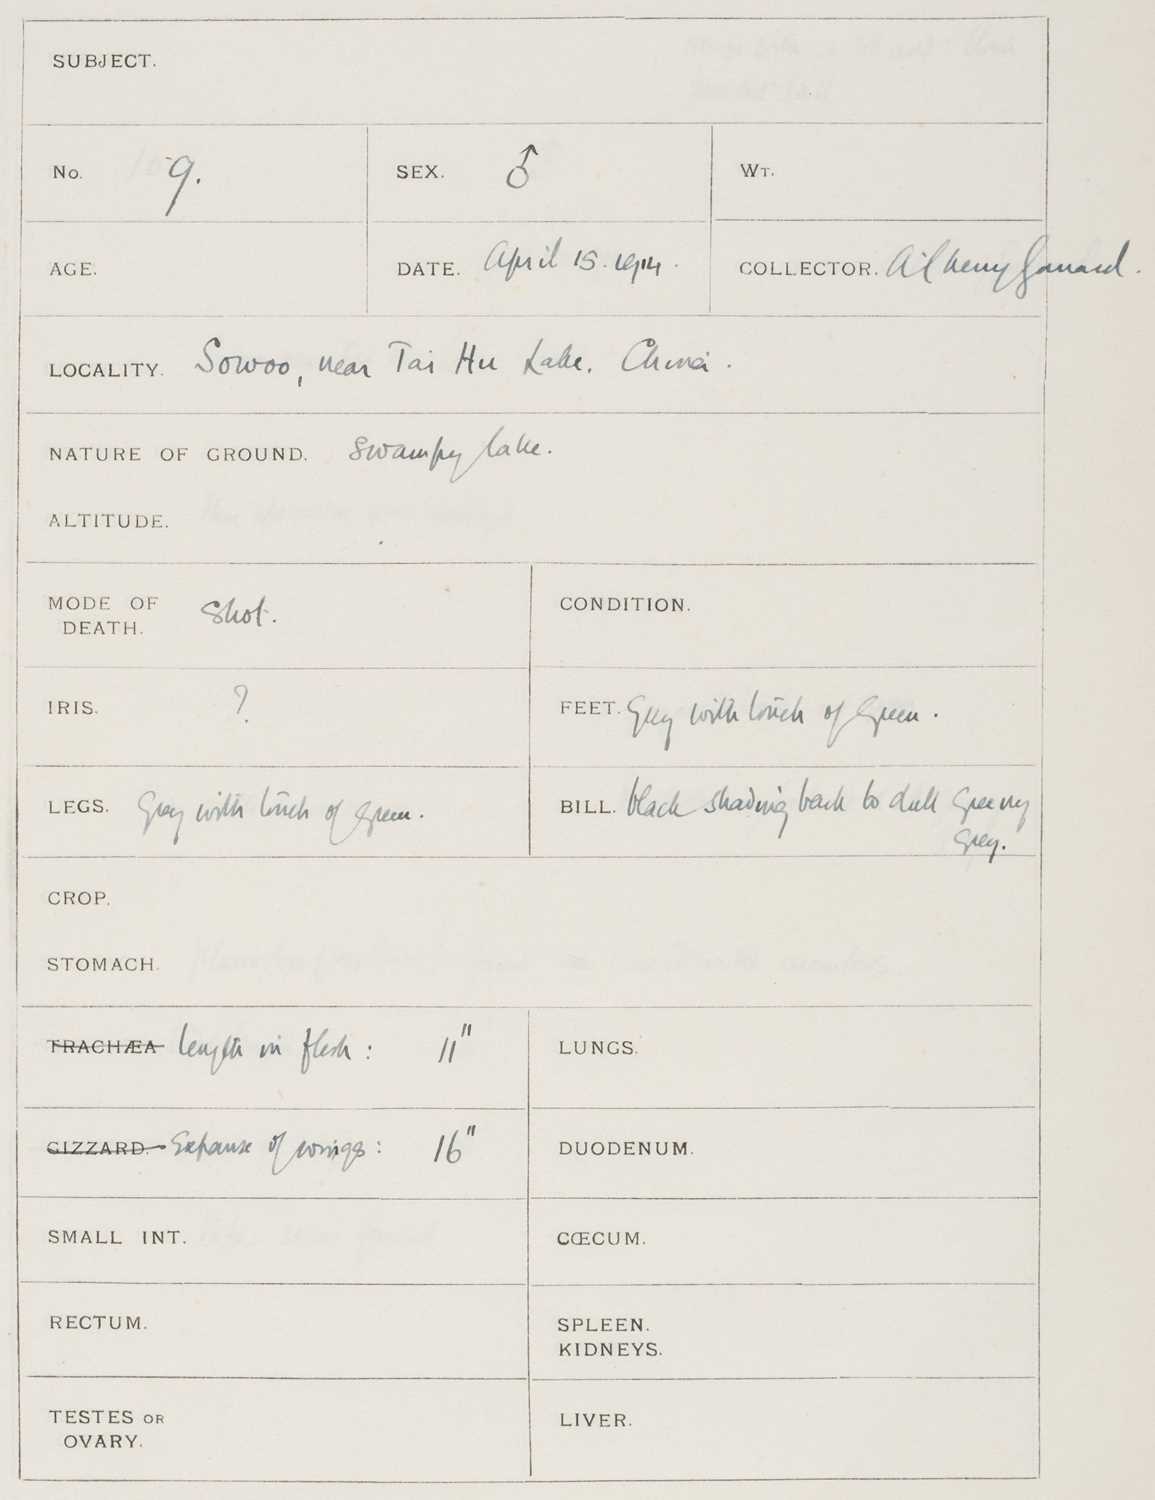 SUBJECT.
No. 9. SEX. ♂ WT.
AGE. DATE. April 15. 1914. COLLECTOR.
LOCALITY. Sowoo, near Tai Hu Lake. China.
NATURE OF GROUND. Swampy lake.
ALTITUDE.
MODE OF DEATH. Shot. CONDITION.
IRIS. ? FEET. Grey with touch of Green.
LEGS. Grey with touch of Green. BILL. black shading back to dull Greeny
Grey.
CROP.
STOMACH.
TRACHÆA length in flesh: 11"
LUNGS.
GIZZARD. Expanse of wings: 16"
DUODENUM.
SMALL INT. CŒCUM.
RECTUM. SPLEEN.
KIDNEYS.
TESTES OR
OVARY. LIVER.